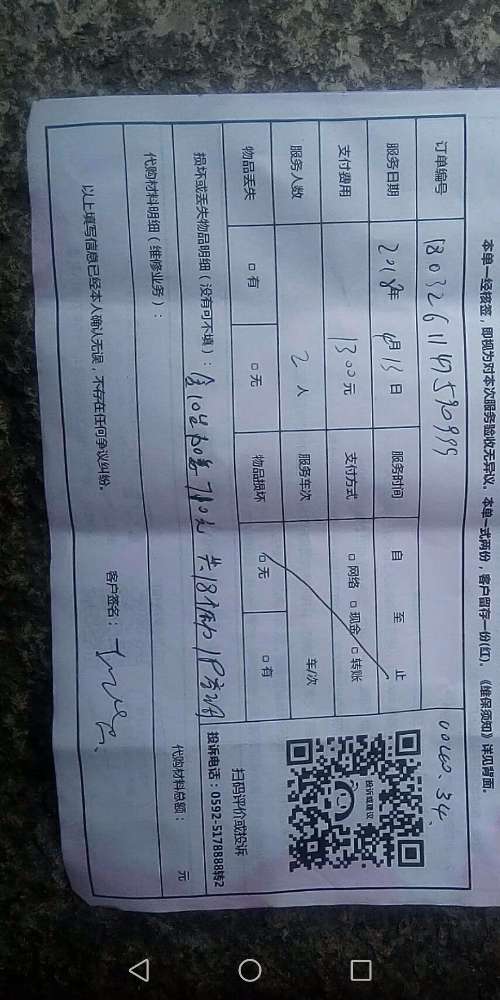 本单一经核签，即视为对本次服务验收无异议。本单一式两份，客户留存一份(红)。《维保须知》详见背面。
订单编号
服务日期 2018年 4月13日 服务时间 自 至 止
支付费用 1300元 支付方式 □网络 □现金 □转账
服务人数 2人 服务车次 车/次
物品丢失 □有 □无 物品损坏 □无 □有
损坏或丢失物品明细（没有可不填）：
代购材料明细（维修业务）： 代购材料总额： 元
以上填写信息已经本人确认无误，不存在任何争议纠纷。 客户签名：
投诉或建议
扫码评价或投诉
投诉电话：0592-5178888转2